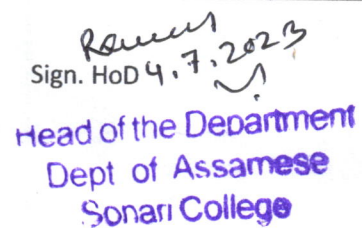 Sign. HoD 4.7.2023
Head of the Department
Dept of Assamese
Sonari College